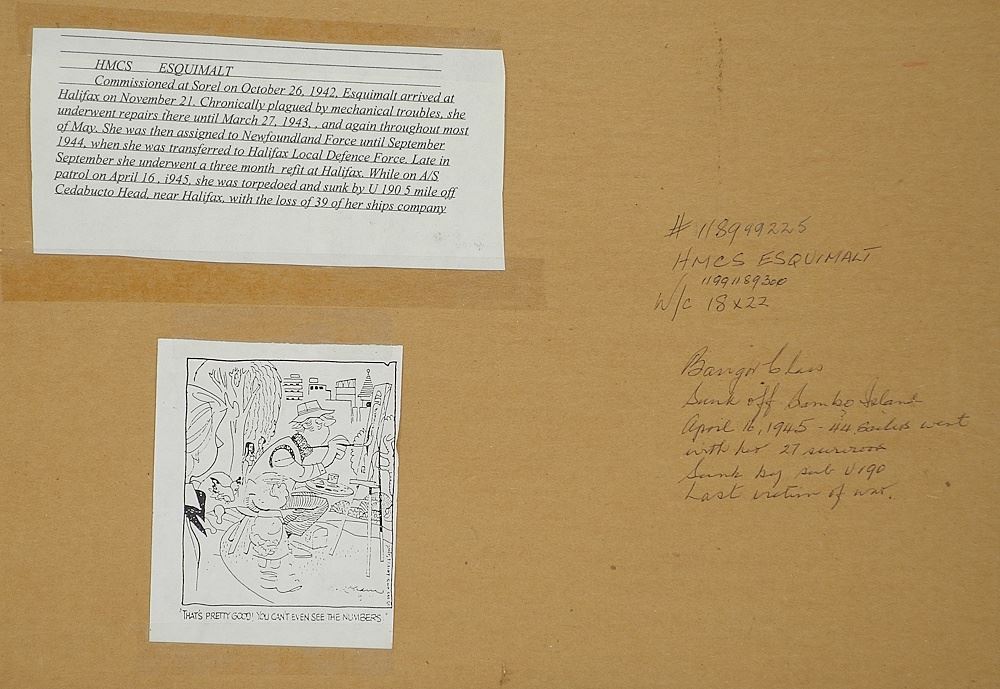 HMCS ESQUIMALT
Commissioned at Sorel on October 26, 1942, Esquimalt arrived at
Halifax on November 21. Chronically plagued by mechanical troubles, she
underwent repairs there until March 27, 1943, , and again throughout most
of May. She was then assigned to Newfoundland Force until September
1944, when she was transferred to Halifax Local Defence Force. Late in
September she underwent a three month refit at Halifax. While on A/S
patrol on April 16 , i945, she was torpedoed and sunk by U 190 5 mile off
Cedabucto Head, near Halifax, with the loss of 39 of her ships company
# 118999225
HMCS ESQUIMALT
1199189300
W/c 18 x 22
Bangor Class
Sunk off Sambo Island
April 16, 1945 - 44 Sailors went
with her 27 survivors
Sunk by sub U190
Last victim of war.
"THAT'S PRETTY GOOD! YOU CAN'T EVEN SEE THE NUMBERS."